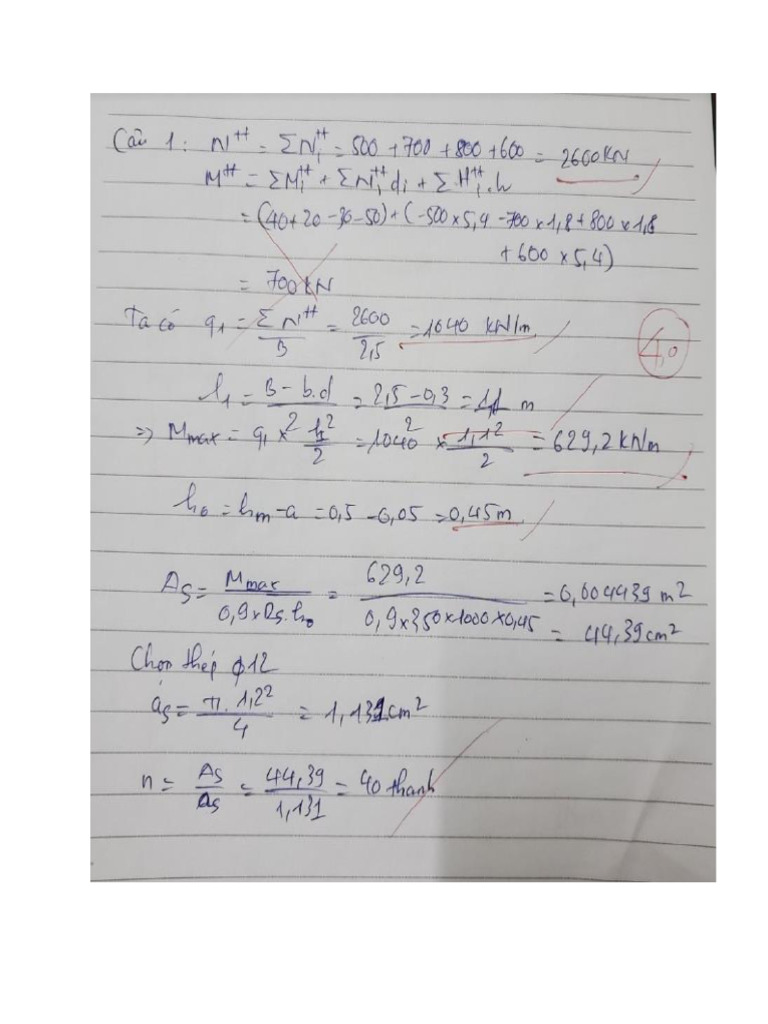 Câu 1: N^tt = ΣN_i^tt = 500 + 700 + 800 + 600 = 2600KN
M^tt = ΣM_i^tt + ΣN_i^tt d_i + ΣH_i^tt.h
= (40+20-30-50) + (-500x5,4 -700x1,8 + 800x1,8
+ 600 x 5,4)
= 700KN
Ta có q_1 = ΣN^tt / B = 2600 / 2,5 = 1040 kN/m
4,0
l_1 = B - b.d / 2 = 2,5 - 0,3 / 2 = 1,1 m
=> M_max = q_1 x l_1^2 / 2 = 1040 x 1,1^2 / 2 = 629,2 kNm
h_0 = h_m - a = 0,5 - 0,05 = 0,45m
A_S = M_max / 0,9xR_S.h_0 = 629,2 / 0,9x350x1000x0,45 = 0,004439 m^2
= 44,39cm^2
Chọn thép ϕ12
a_S = π.1,2^2 / 4 = 1,131cm^2
n = A_S / a_S = 44,39 / 1,131 = 40 thanh